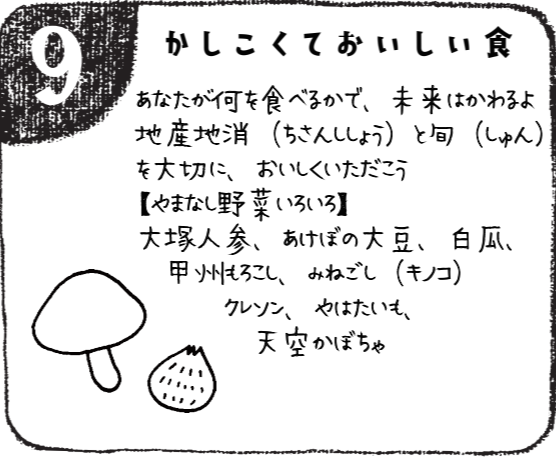 9
かしこくておいしい食
あなたが何を食べるかで、未来はかわるよ
地産地消（ちさんちしょう）と旬（しゅん）
を大切に、おいしくいただこう
【やまなし野菜いろいろ】
大塚人参、あけぼの大豆、白瓜、
甲州もろこし、みねごし（キノコ）
クレソン、やはたいも、
天空かぼちゃ